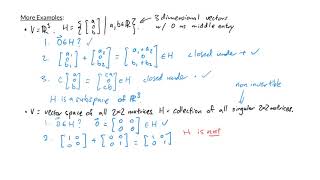 More Examples:
• V = ℝ³. H = { [a 0 b] | a,b ∈ ℝ } 3 dimensional vectors
w/ 0 as middle entry
1. 0⃗ ∈ H? ✓
2. [a₁ 0 b₁] + [a₂ 0 b₂] = [a₁+a₂ 0 b₁+b₂] ∈ H closed under +  ✓
3. c [a 0 b] = [ca 0 cb] ∈ H closed under · ✓
H is a subspace of ℝ³
non invertible
• V = vector space of all 2×2 matrices. H = collection of all singular 2×2 matrices.
1. 0⃗ ∈ H? 0⃗ = [0 0 0 0] ∈ H ✓
2. [1 0 0 0] + [0 0 0 1] = [1 0 0 1] H is not